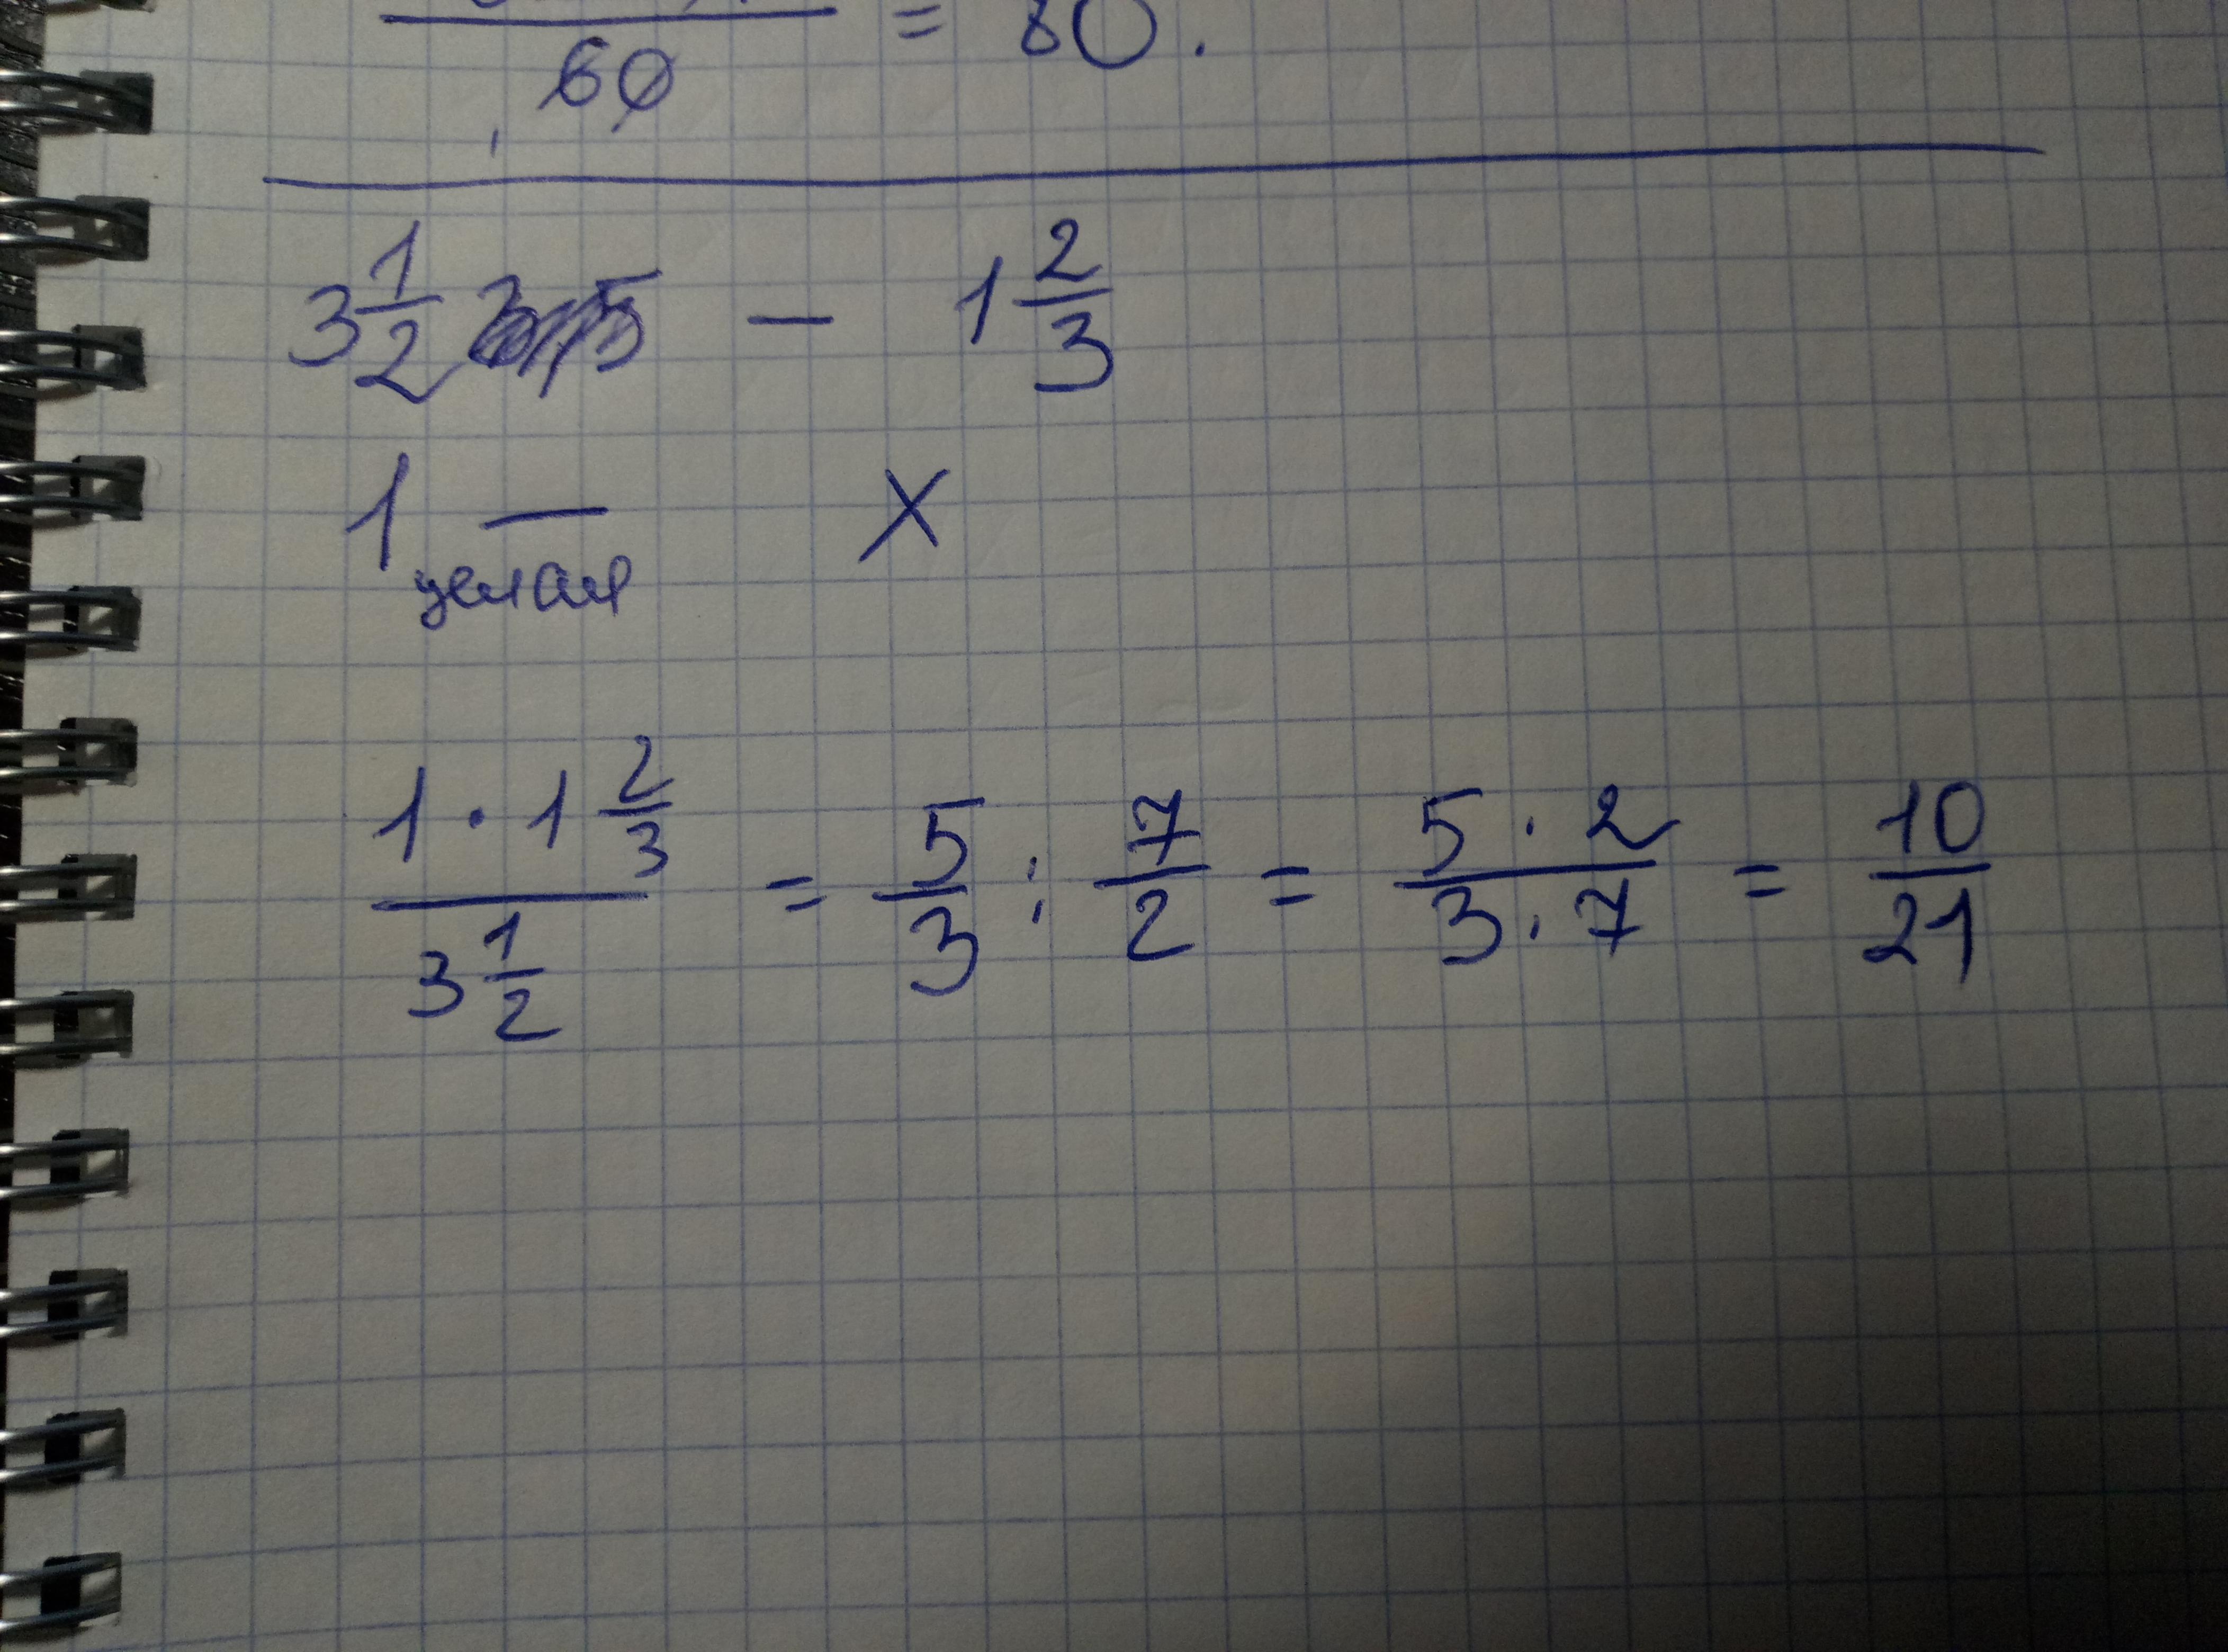 60 = 80.
3 1/2 - 1 2/3
1 целая - X
(1 · 1 2/3) / (3 1/2) = 5/3 : 7/2 = (5 · 2)/(3 · 7) = 10/21